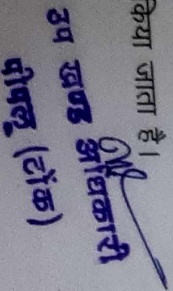 किया जाता है।
उप खण्ड अधिकारी
पीपलू (टोंक)